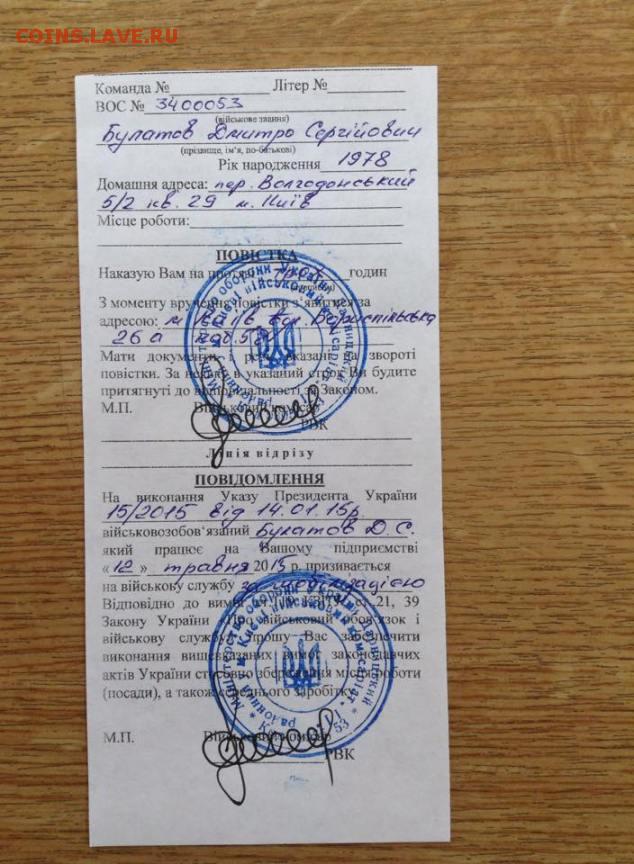 COINS.LAVE.RU
Команда № Літер №
ВОС № 3400053
(військове звання)
Булатов Дмитро Сергійович
(прізвище, ім'я, по-батькові)
Рік народження 1978
Домашня адреса: пер. Волгодонський
5/2 кв. 29 м. Київ
Місце роботи:
ПОВІСТКА
Наказую Вам на протязі трьох годин
З моменту вручення повістки з'явитися за
адресою: м. Київ вул. Бориспільська
26 а
Мати документи і речі вказані на звороті
повістки. За неявку в указаний строк Ви будете
притягнуті до відповідальності за Законом.
М.П. Військовий комісар
РВК
Лінія відрізу
ПОВІДОМЛЕННЯ
На виконання Указу Президента України
15/2015 від 14.01.15р.
військовозобов'язаний Булатов Д.С.
який працює на Вашому підприємстві
« 12 » травня 2015 р. призивається
на військову службу за мобілізацією
Відповідно до вимог ст. 21, 39
Закону України "Про військовий обов'язок і
військову службу" прошу Вас забезпечити
виконання вищевказаних вимог законодавчих
актів України стосовно збереження місця роботи
(посади), а також середнього заробітку.
М.П. Військовий комісар
РВК